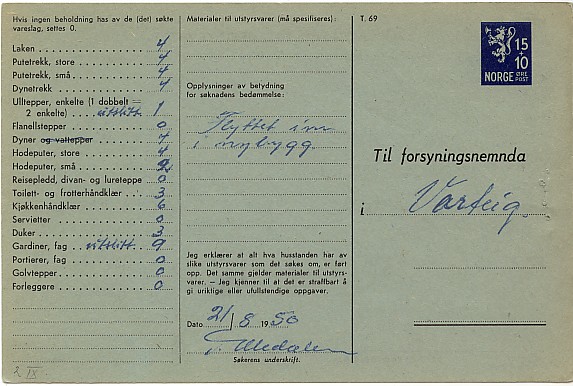 Hvis ingen beholdning has av de (det) søkte
vareslag, settes 0.
Laken 4
Putetrekk, store 4
Putetrekk, små 4
Dynetrekk 4
Ulltepper, enkelte (1 dobbelt =
2 enkelte) utslitt 1
Flanellstepper 0
Dyner og vattepper 7
Hodeputer, store 4
Hodeputer, små 2
Reisepledd, divan- og lureteppe 0
Toilett- og frotterhåndklær 3
Kjøkkenhåndklær 6
Servietter 0
Duker 3
Gardiner, fag utslitt 9
Portierer, fag 0
Golvtepper 0
Forleggere 0
2 IX
Materialer til utstyrsvarer (må spesifiseres):
Opplysninger av betydning
for søknadens bedømmelse:
Flyttet inn
i nybygg.
Jeg erklærer at alt hva husstanden har av
slike utstyrsvarer som det søkes om, er ført
opp. Det samme gjelder materialer til utstyrs-
varer. – Jeg kjenner til at det er straffbart å
gi uriktige eller ufullstendige oppgaver.
Dato 21/8 1950
Søkerens underskrift.
T. 69
15
+
10
NORGE ØRE
POST
Til forsyningsnemnda
i Varteig.